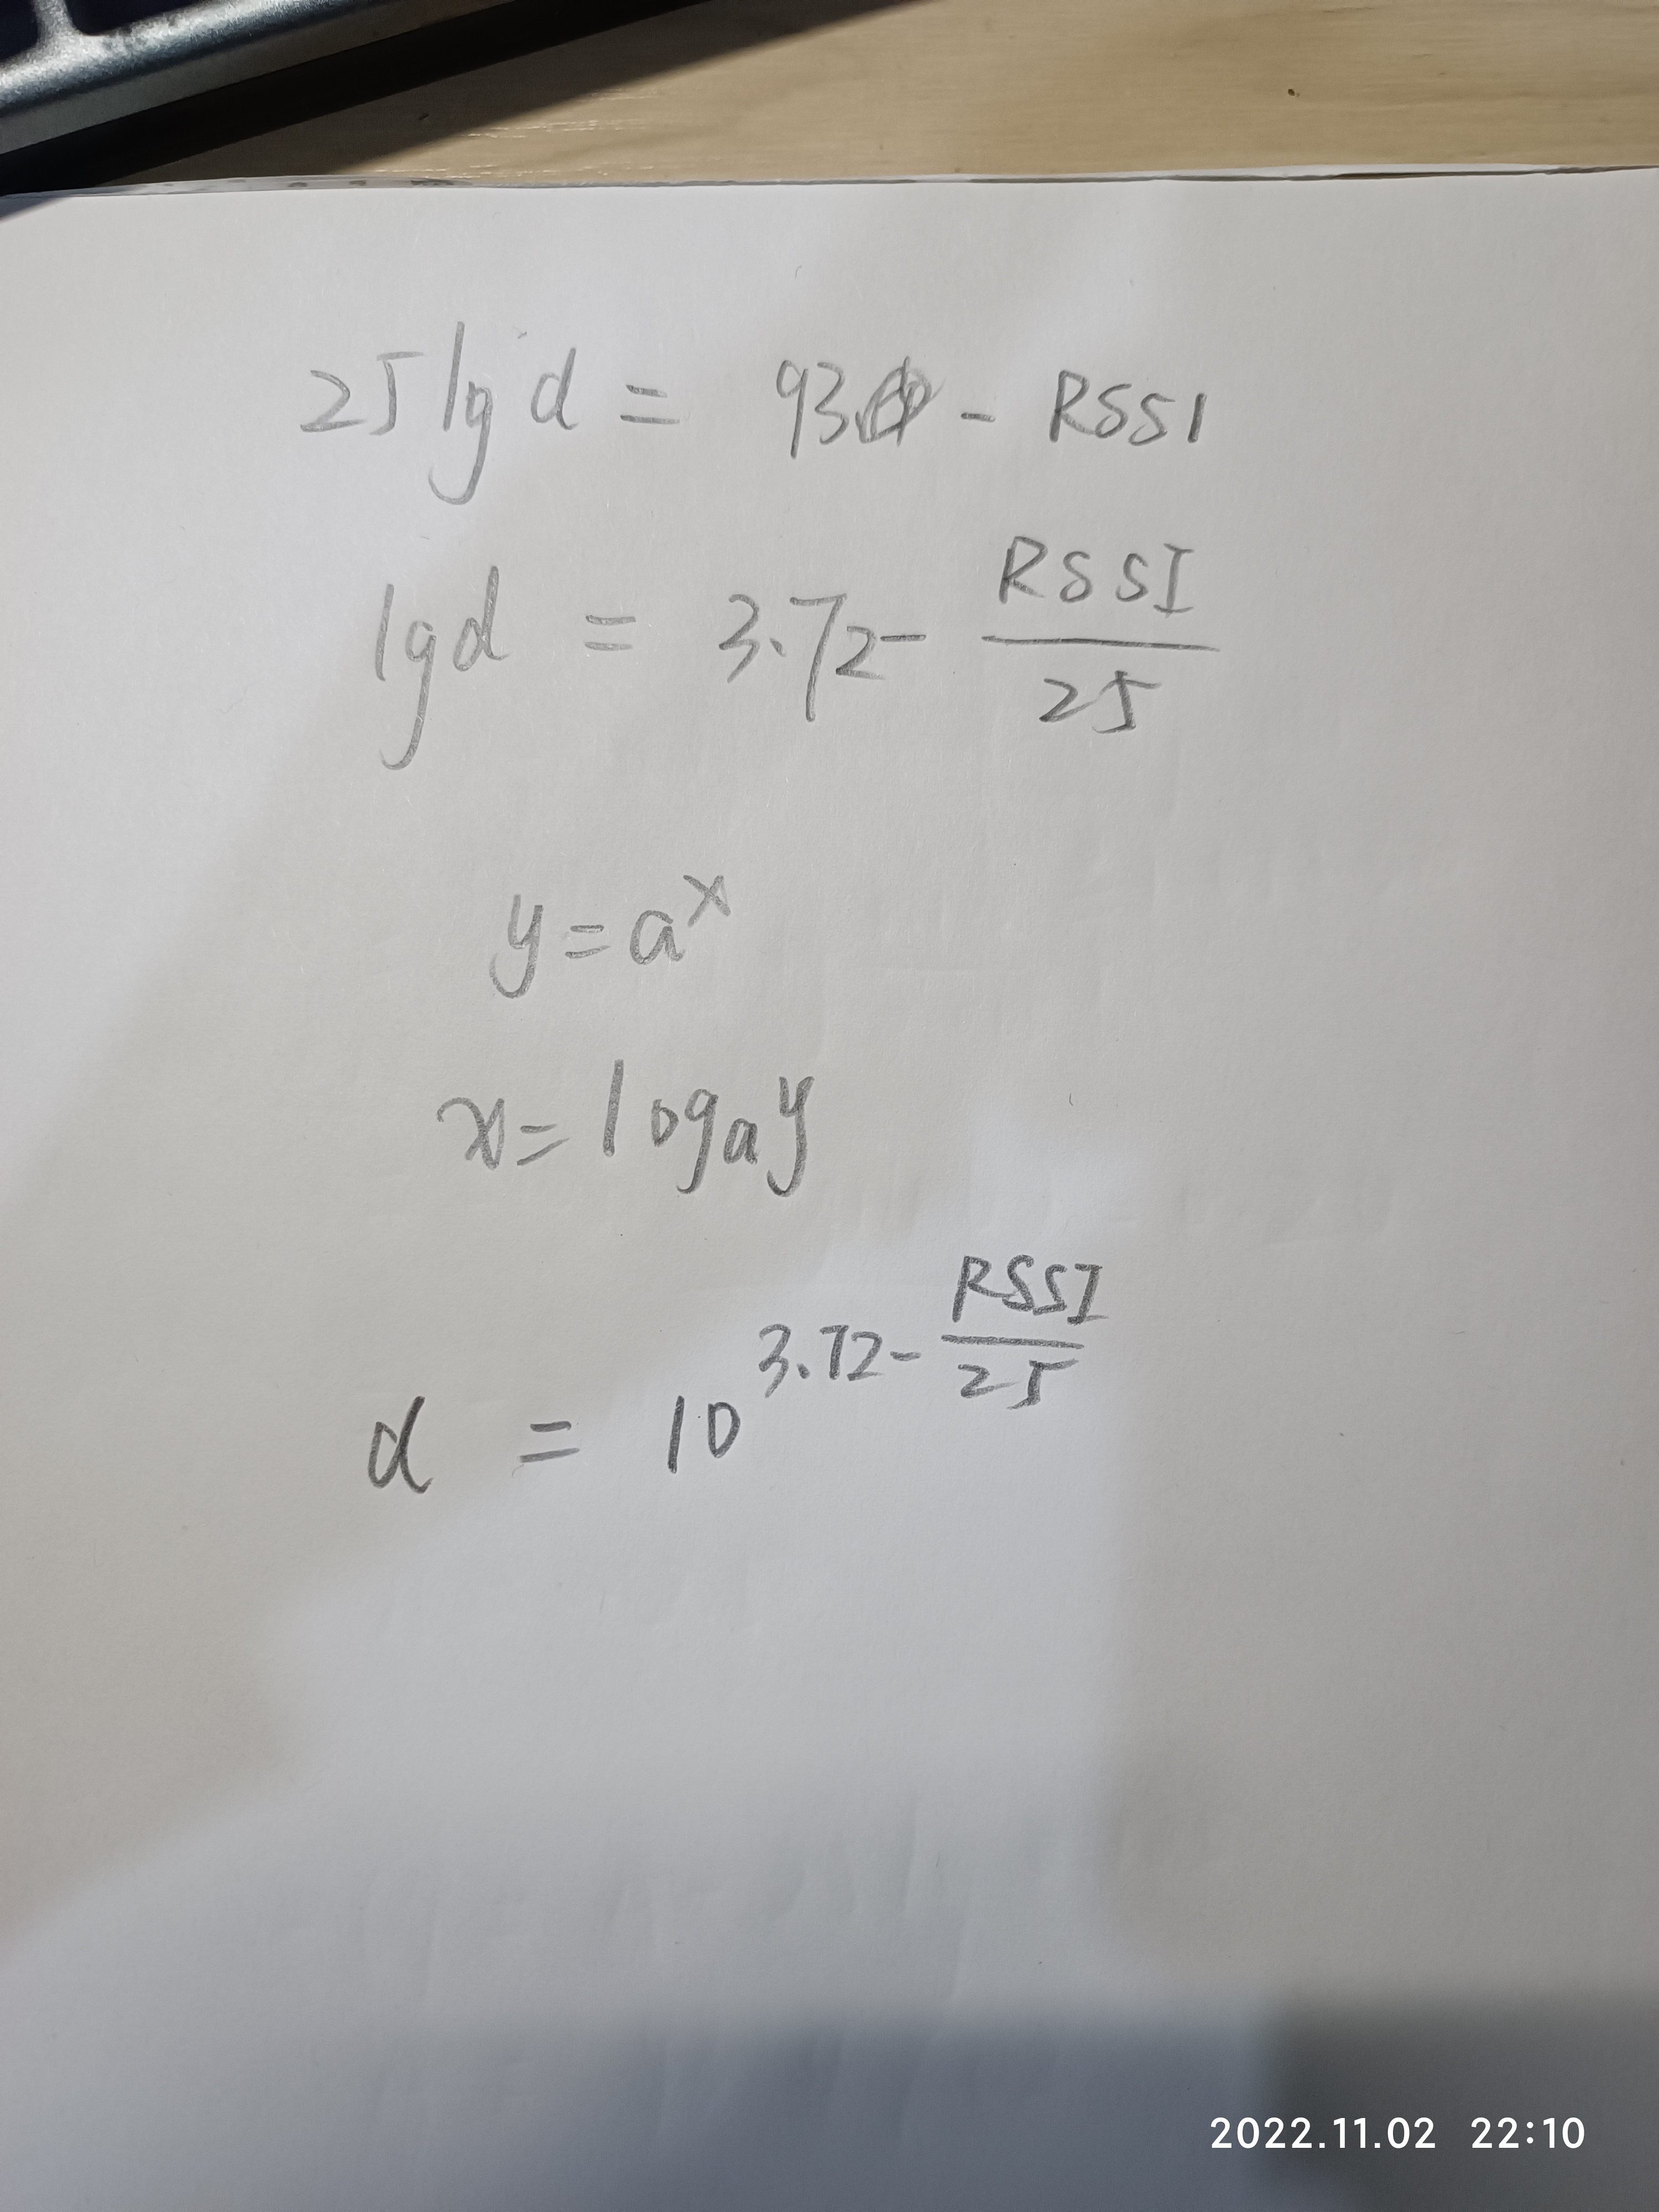 25 lg d = 93 - RSSI
lg d = 3.72 - RSSI/25
y = a^x
x = log_a y
d = 10^(3.72 - RSSI/25)
2022.11.02 22:10